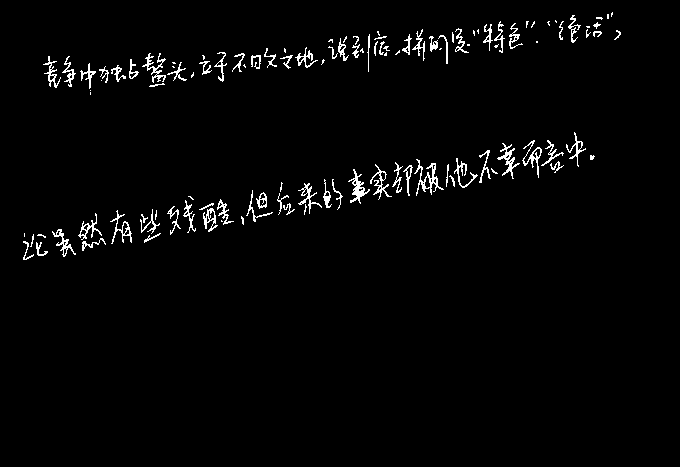 竞争中独占鳌头，立于不败之地，说到底，拼的是“特色”、“绝活”，
论虽然有些残酷，但后来的事实却被他不幸而言中。